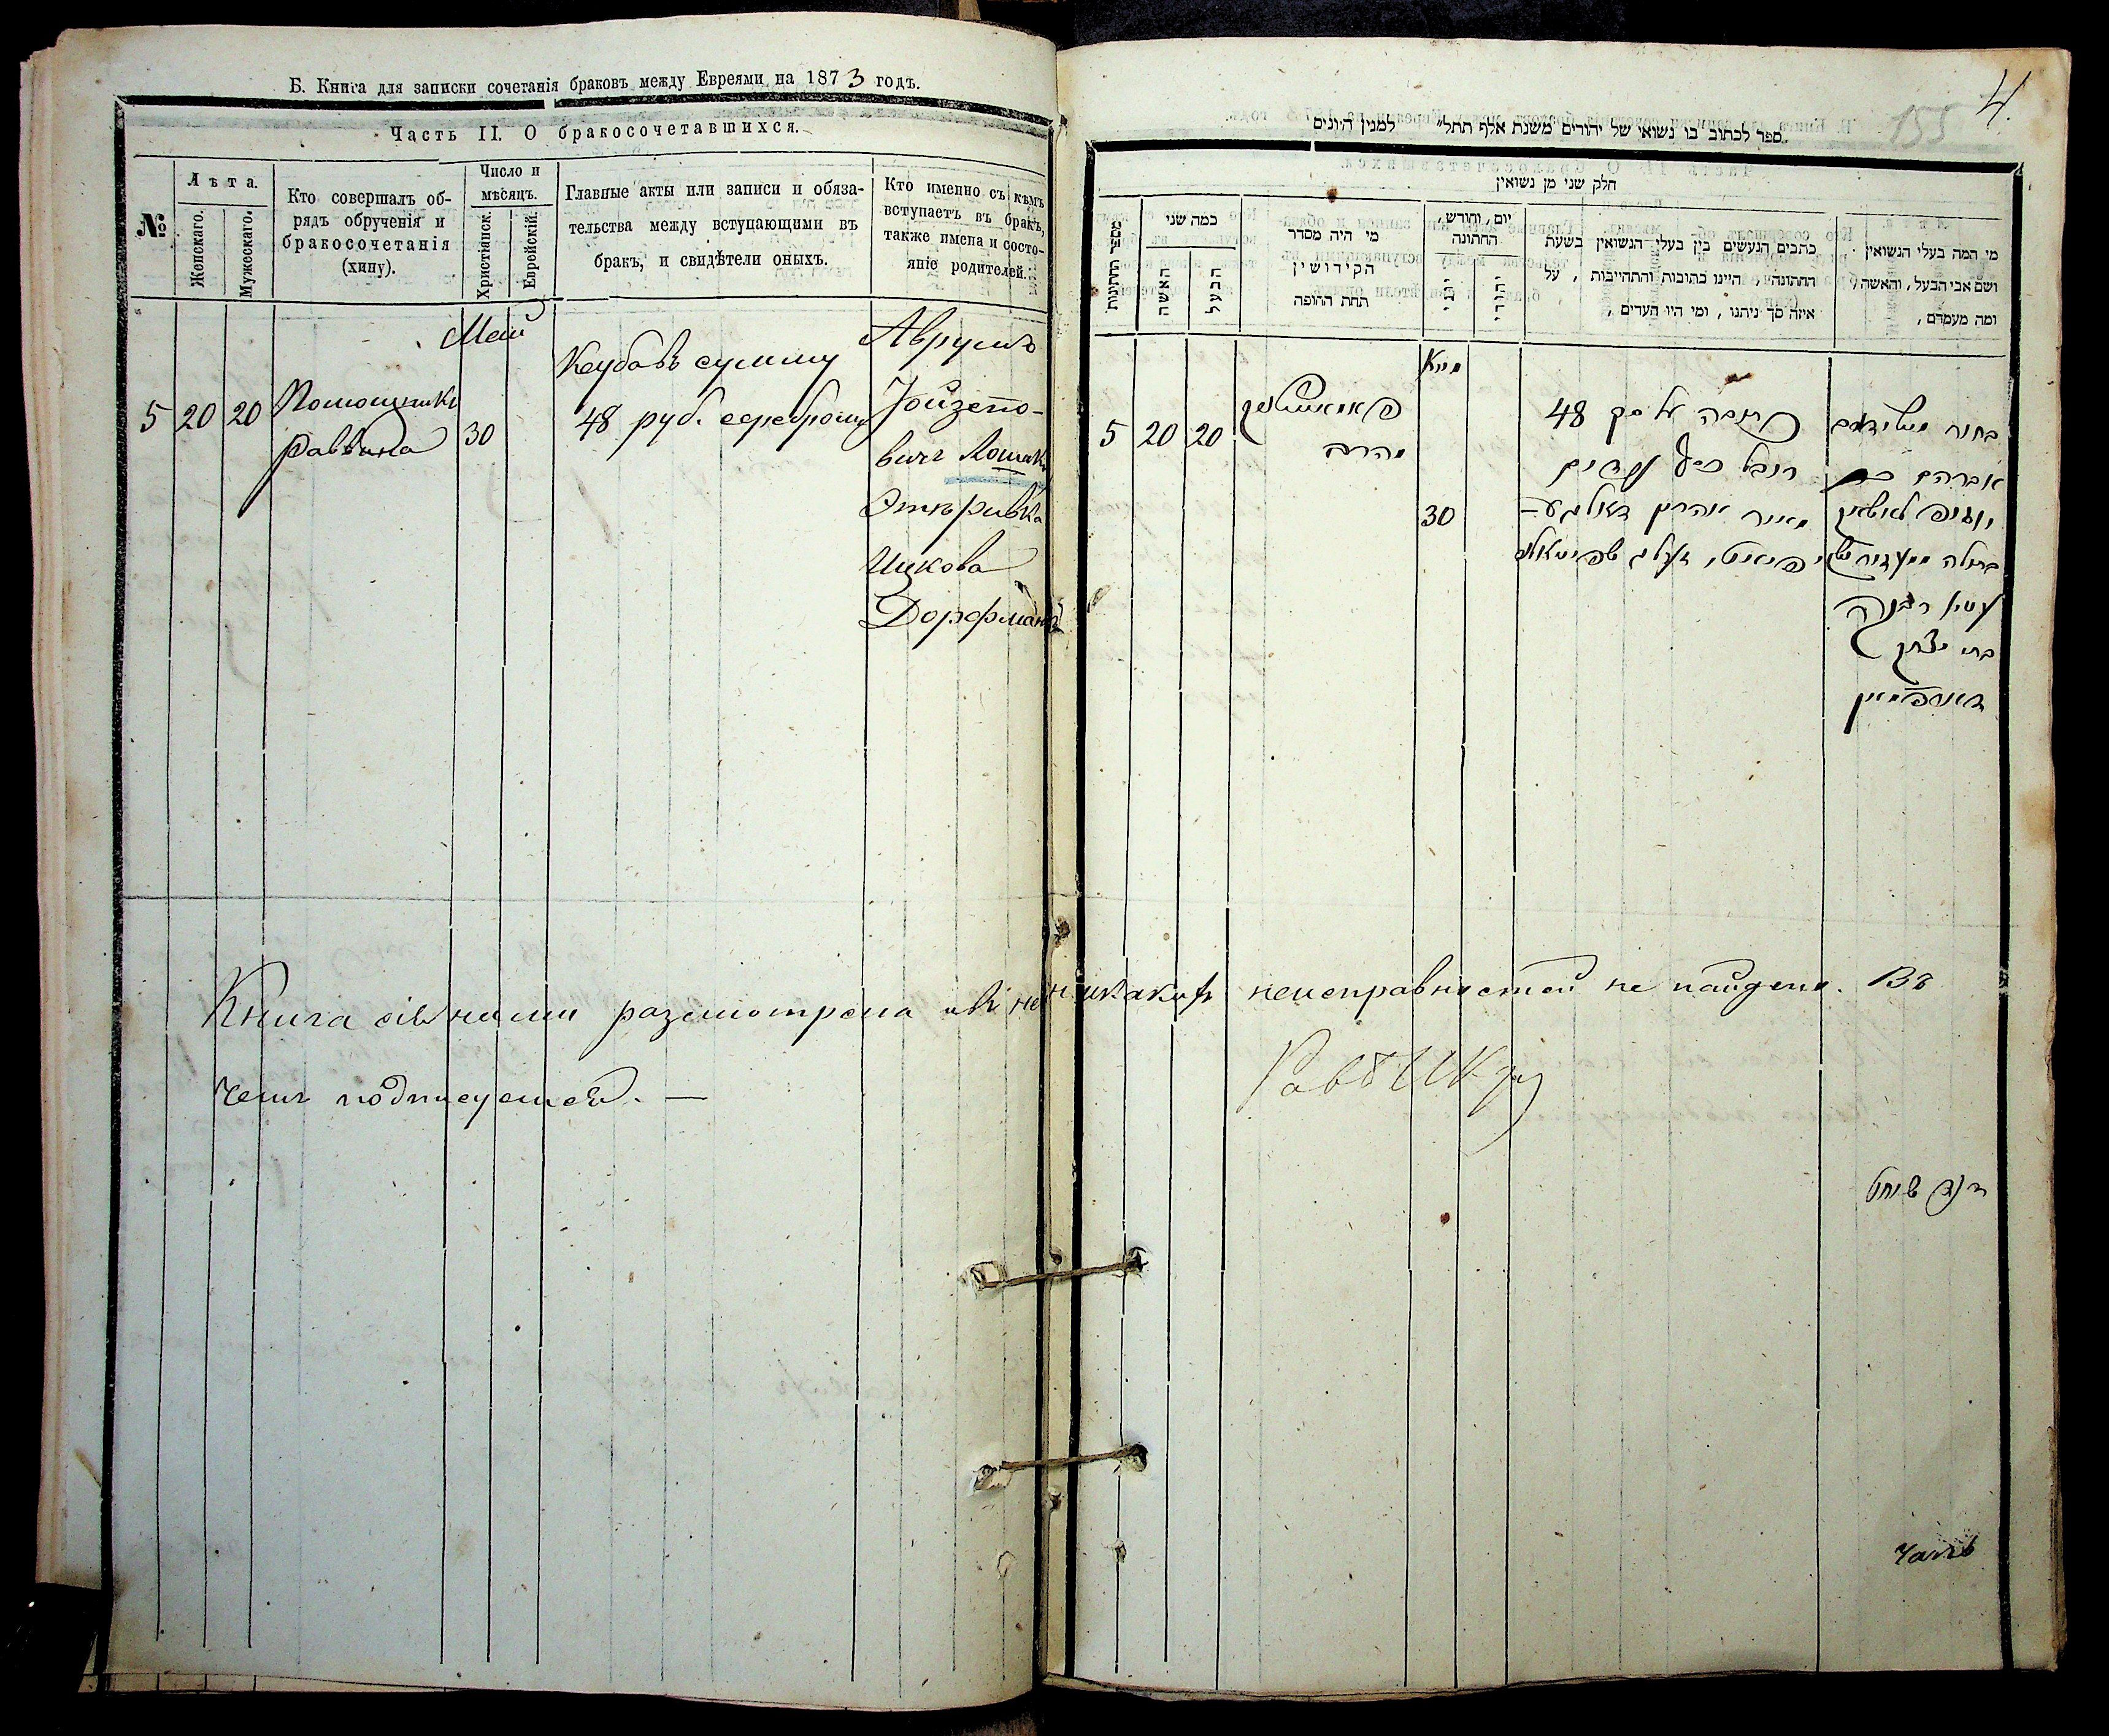 Б. Книга для записки сочетанія браковъ между Евреями на 1873 годъ.
Часть II. О бракосочетавшихся.
№
Лѣта.
Женскаго.
Мужескаго.
Кто совершалъ об-
рядъ обрученія и
бракосочетанія
(хипу).
Число и
мѣсяцъ.
Христіанск.
Еврейскій.
Главные акты или записи и обяза-
тельства между вступающими въ
бракъ, и свидѣтели оныхъ.
Кто именно съ кѣмъ
вступаетъ въ бракъ,
также имена и состо-
яніе родителей.
Май
5 20 20
Помощникъ
раввина
30
Кеубовъ сумму
48 руб. серебромъ
Аврумъ
Іойзепо-
вичъ Лошакъ
Этъ Ривка
Ицкова
Дорфманъ
4.
155
ספר לכתוב בו נשואי של יהודים משנת אלף תתל״ למנין היונים
חלק שני מן נשואין
מספר החתונות
כמה שני
האשה
הבעל
מי היה מסדר
הקידושין
תחת החופה
יום, וחודש,
החתונה
יוני
יהודי
כתבים הנעשים בין בעלי הנשואין בשעת
החתונה, היינו כתובות והתחייבות, על
איזה סך ניתנו, ומי היו העדים,
מי המה בעלי הנשואין
ושם אבי הבעל, והאשה,
ומה מעמדם,
מייא
5 20 20
30
כתובה על סך 48
רובל כסף
מאיר אהרן
בחור
אברהם בן
יוזיפ לאשאק
בתולה
עטיל רבקה
בת יצחק
דארפמאן
Книга сія нами разсмотрена и въ ней никакихъ неисправностей не найдено. Въ
чемъ подписуемся. —